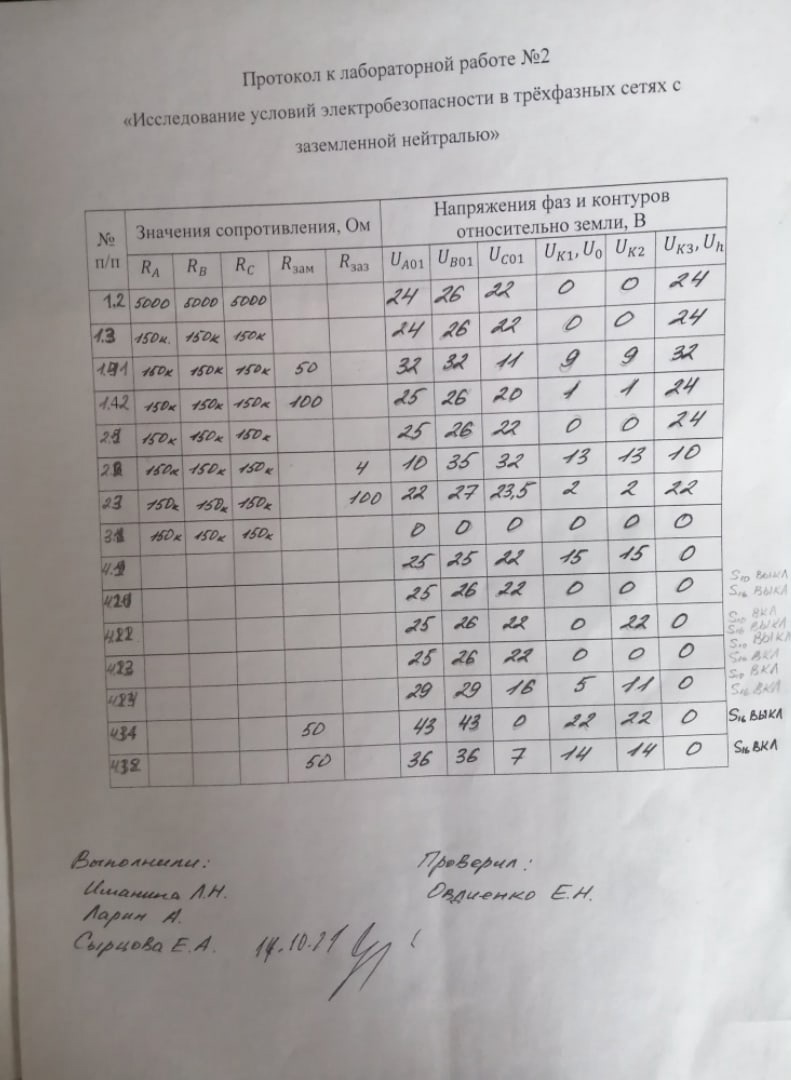 Протокол к лабораторной работе №2
«Исследование условий электробезопасности в трёхфазных сетях с
заземленной нейтралью»
№ п/п Значения сопротивления, Ом Напряжения фаз и контуров относительно земли, В
R_A R_B R_C R_зам R_заз U_A01 U_B01 U_C01 U_К1, U_0 U_К2 U_К3, U_h
1.2 5000 5000 5000 24 26 22 0 0 24
1.3 150к. 150к 150к 24 26 22 0 0 24
150к 150к 150к 50 32 32 11 9 9 32
1.42 150к 150к 150к 100 25 26 20 1 1 24
150к 150к 150к 25 26 22 0 0 24
150к 150к 150к 4 10 35 32 13 13 10
23 150к 150к 150к 100 22 27 23,5 2 2 22
150к 150к 150к 0 0 0 0 0 0
25 25 22 15 15 0
25 26 22 0 0 0 S₁₀ ВЫКЛ S₁₆ ВЫКЛ
25 26 22 0 22 0 ВКЛ ВЫКЛ
25 26 22 0 0 0 ВЫКЛ ВКЛ
29 29 16 5 11 0 ВКЛ S₁₆ ВКЛ
50 43 43 0 22 22 0 S₁₆ ВЫКЛ
50 36 36 7 14 14 0 S₁₆ ВКЛ
Выполнили: Проверил:
Иманина Л.Н. Овдиенко Е.Н.
Ларин А.
Сырцова Е.А. 14.10.21